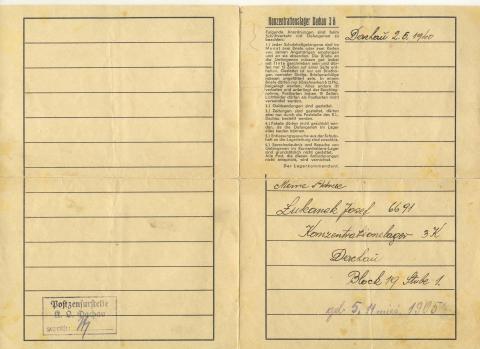 Konzentrationslager Dachau 3 K
Folgende Anordnungen sind beim
Schriftverkehr mit Gefangenen zu
beachten:
1.) Jeder Schutzhaftgefangene darf im
Monat zwei Briefe oder zwei Karten
von seinen Angehörigen empfangen
und an sie absenden. Die Briefe an
die Gefangenen müssen gut lesbar
mit Tinte geschrieben sein und dür-
fen nur 15 Zeilen auf einer Seite ent-
halten. Gestattet ist nur ein Briefbo-
gen normaler Größe. Briefumschläge
müssen ungefüttert sein. In einem
Briefe dürfen nur
beigelegt werden. Alles andere ist
verboten und unterliegt der Beschlag-
nahme. Postkarten haben 10 Zeilen.
Lichtbilder dürfen als Postkarten nicht
verwendet werden.
2.) Geldsendungen sind gestattet.
3.) Zeitungen sind gestattet, dürfen
aber nur durch die Poststelle des K.L.
Dachau bestellt werden.
4.) Pakete dürfen nicht geschickt wer-
den, da die Gefangenen im Lager
alles kaufen können.
5.) Entlassungsgesuche aus der Schutz-
haft an die Lagerleitung sind zwecklos.
6.) Sprecherlaubnis und Besuche von
Gefangenen im Konzentrations-Lager
sind grundsätzlich nicht gestattet.
Alle Post, die diesen Anforderungen
nicht entspricht, wird vernichtet.
Der Lagerkommandant.
Dachau 2.6. 1940
Meine Adresse
Lukanek Josef 6691
Konzentrationslager 3 K
Dachau
Block 19 Stube 1.
geb. 5. 11 1905
Postzensurstelle
K. L. Dachau
geprüft: